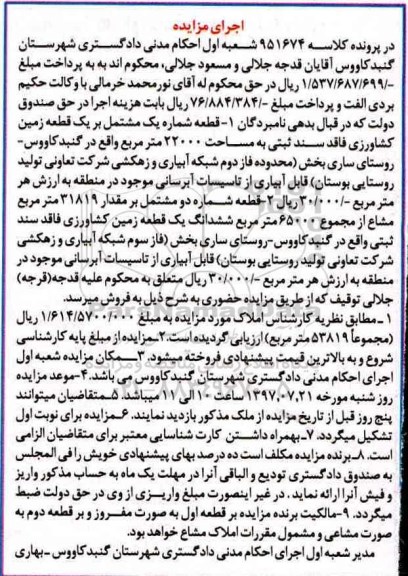 اجرای مزایده
در پرونده کلاسه ۹۵۱۶۷۴ شعبه اول احکام مدنی دادگستری شهرستان
گنبدکاووس آقایان قدجه جلالی و مسعود جلالی، محکوم اند به به پرداخت مبلغ
۱/۵۳۷/۶۸۷/۶۹۹/- ریال در حق محکوم له آقای نورمحمد خرمالی با وکالت حکیم
بردی الفت و پرداخت مبلغ ۷۶/۸۸۴/۳۸۴/- ریال بابت هزینه اجرا در حق صندوق
دولت که در قبال بدهی نامبردگان ۱-قطعه شماره یک مشتمل بر یک قطعه زمین
کشاورزی فاقد سند ثبتی به مساحت ۲۲۰۰۰ متر مربع واقع در گنبدکاووس-
روستای ساری بخش (محدوده فاز دوم شبکه آبیاری و زهکشی شرکت تعاونی تولید
روستایی بوستان) قابل آبیاری از تاسیسات آبرسانی موجود در منطقه به ارزش هر
متر مربع ۳۰/۰۰۰/- ریال ۲-قطعه شماره دو مشتمل بر مقدار ۳۱۸۱۹ متر مربع
مشاع از مجموع ۶۵۰۰۰ متر مربع ششدانگ یک قطعه زمین کشاورزی فاقد سند
ثبتی واقع در گنبدکاووس-روستای ساری بخش (فاز سوم شبکه آبیاری و زهکشی
شرکت تعاونی تولید روستایی بوستان) قابل آبیاری از تاسیسات آبرسانی موجود در
منطقه به ارزش هر متر مربع ۳۰/۰۰۰/- ریال متعلق به محکوم علیه قدجه(قرجه)
جلالی توقیف که از طریق مزایده حضوری به شرح ذیل به فروش میرسد.
۱-مطابق نظریه کارشناس املاک مورد مزایده به مبلغ ۱/۶۱۴/۵۷۰۰/۰۰۰ ریال
(مجموعاً ۵۳۸۱۹ متر مربع) ارزیابی گردیده است.۲-مزایده از مبلغ پایه کارشناسی
شروع و به بالاترین قیمت پیشنهادی فروخته میشود. ۳-مکان مزایده شعبه اول
اجرای احکام مدنی دادگستری شهرستان گنبدکاووس می باشد.۴-موعد مزایده
روز شنبه مورخه ۱۳۹۷.۰۷.۲۱ ساعت ۱۰ الی ۱۱ میباشد ۵-متقاضیان میتوانند
پنج روز قبل از تاریخ مزایده از ملک مذکور بازدید نمایند. ۶-مزایده برای نوبت اول
تشکیل میگردد. ۷-بهمراه داشتن کارت شناسایی معتبر برای متقاضیان الزامی
است. ۸-برنده مزایده مکلف است ده درصد بهای پیشنهادی خویش را فی المجلس
به صندوق دادگستری تودیع و الباقی آنرا در مهلت یک ماه به حساب مذکور واریز
و فیش آنرا ارائه نماید. در غیر اینصورت مبلغ واریزی از وی در حق دولت ضبط
میگردد. ۹-مالکیت برنده مزایده بر قطعه اول به صورت مفروز و بر قطعه دوم به
صورت مشاعی و مشمول مقررات املاک مشاع خواهد بود.
مدیر شعبه اول اجرای احکام مدنی دادگستری شهرستان گنبدکاووس-بهاری